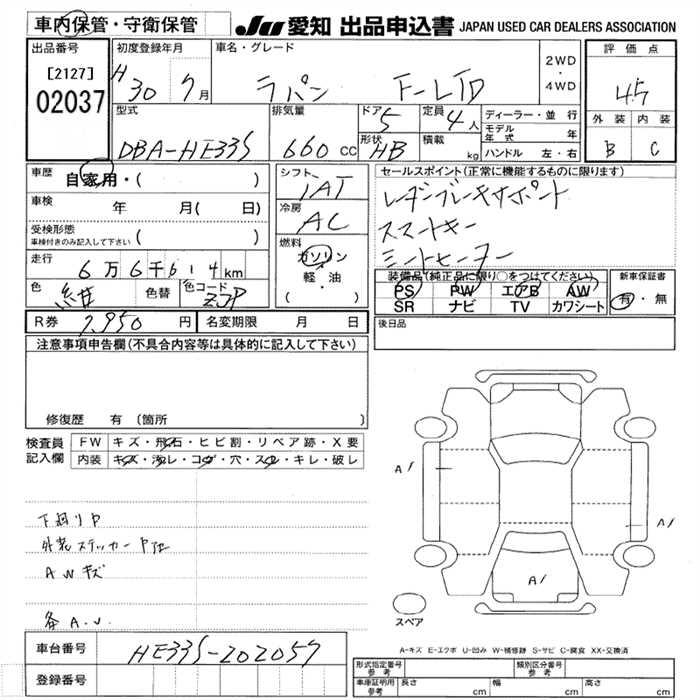 車内保管・守衛保管
JU 愛知 出品申込書 JAPAN USED CAR DEALERS ASSOCIATION
出品番号
[2127]
02037
初度登録年月
H 30 7月
車名・グレード
ラパン F-LTD
2WD
・
4WD
評価点
4.5
外装 内装
B C
型式
DBA-HE33S
排気量
660 cc
ドア
5
形状
HB
定員
4人
積載
kg
ディーラー・並行
モデル年式 年
ハンドル 左・右
車歴
自家用・( )
車検
年 月( 日)
受検形態
車検付きのみ記入して下さい ( )
走行
6万6千614km
色
紺
色替
色コード
ZJP
シフト
IAT
冷房
AC
燃料
ガソリン
軽・油
( )
セールスポイント(正常に機能するものに限ります)
レーダーブレーキサポート
スマートキー
シートヒーター
装備品(純正品に限り○をつけてください)
PS PW エアB AW
SR ナビ TV カワシート
新車保証書
有・無
R券 7,950円
名変期限 月 日
後日品
注意事項申告欄(不具合内容等は具体的に記入して下さい)
修復歴 有 〔箇所 〕
検査員記入欄
FW キズ・飛石・ヒビ割・リペア跡・X要
内装 キズ・汚レ・コゲ・穴・スレ・キレ・破レ
下廻りP
外装ステッカーP他
AWキズ
各A.U.
A1
A1
A1
スペア
A-キズ E-エクボ U-凹み W-補修跡 S-サビ C-腐食 XX-交換済
車台番号 HE33S-202057
登録番号
形式指定番号
参考
類別区分番号
参考
車庫証明用
参考
長さ cm 幅 cm 高さ cm